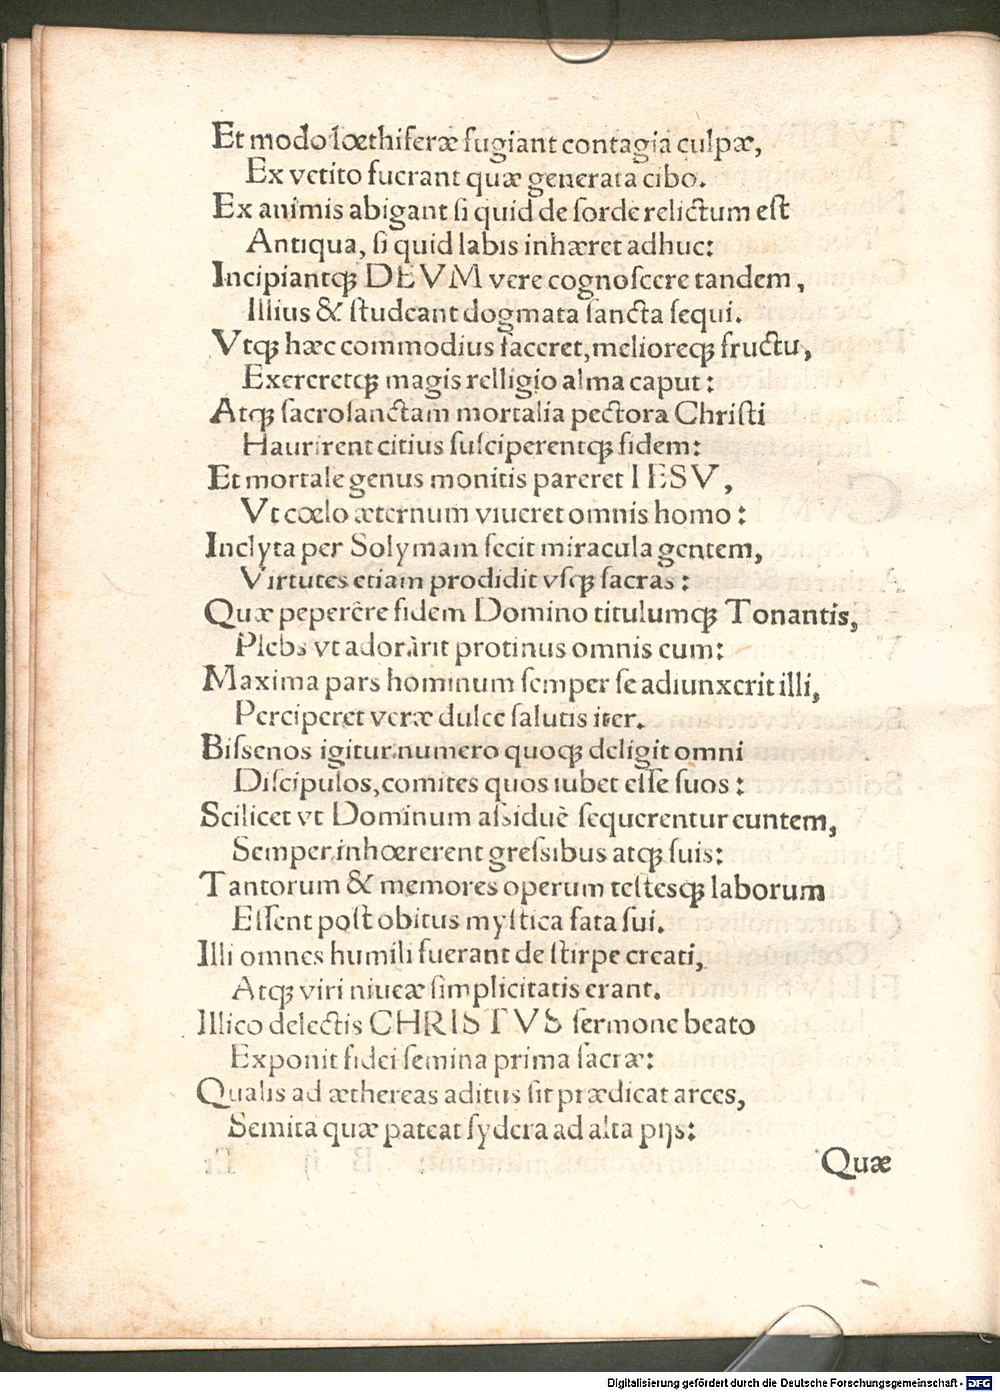 Et modo lœthiferæ fugiant contagia culpæ,
Ex vetito fuerant quæ generata cibo.
Ex animis abigant si quid de sorde relictum est
Antiqua, si quid labis inhæret adhuc:
Incipiantq́; DEVM vere cognoscere tandem,
Illius & studeant dogmata sancta sequi.
Vtq́; hæc commodius faceret, melioreq́; fructu,
Exereretq́; magis relligio alma caput:
Atq́; sacrosanctam mortalia pectora Christi
Haurirent citius susciperentq́; fidem:
Et mortale genus monitis pareret IESV,
Vt cœlo æternum viueret omnis homo:
Inclyta per Solymam fecit miracula gentem,
Virtutes etiam prodidit vsq́; sacras:
Quæ peperêre fidem Domino titulumq́; Tonantis,
Plebs vt adorârit protinus omnis eum:
Maxima pars hominum semper se adiunxerit illi,
Perciperet veræ dulce salutis iter.
Bissenos igitur numero quoq́; deligit omni
Discipulos, comites quos iubet esse suos:
Scilicet vt Dominum assiduè sequerentur euntem,
Semper inhœrerent gressibus atq́; suis:
Tantorum & memores operum testesq́; laborum
Essent post obitus mystica fata sui.
Illi omnes humili fuerant de stirpe creati,
Atq́; viri niueæ simplicitatis erant.
Illico delectis CHRISTVS sermone beato
Exponit fidei semina prima sacræ:
Qualis ad æthereas aditus sit prædicat arces,
Semita quæ pateat sydera ad alta pijs:
Quæ
Digitalisierung gefördert durch die Deutsche Forschungsgemeinschaft - DFG